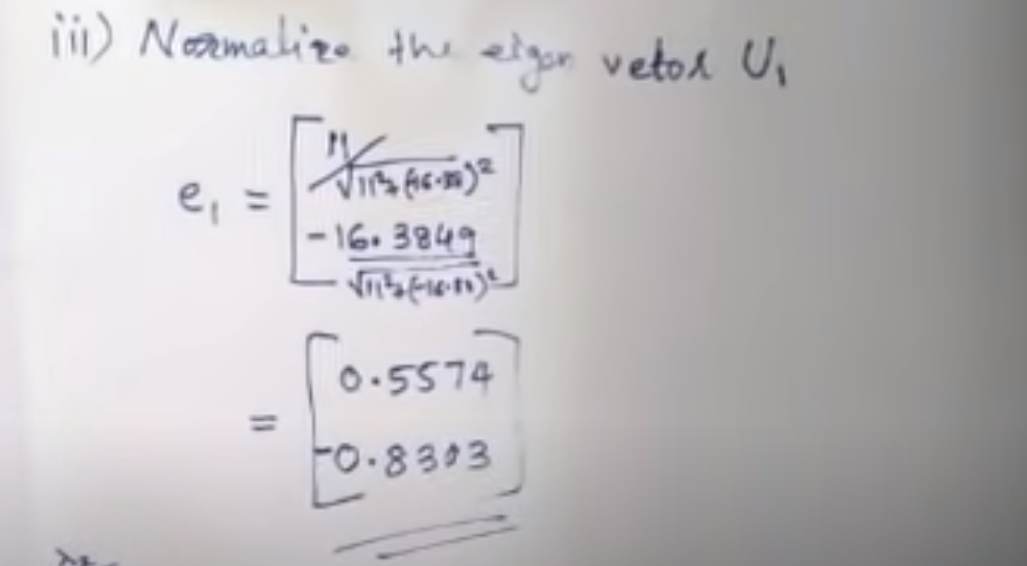 iii) Normalize the eigen vetor U₁
11
√11²+(-16.38)²
e₁ =
-16.3849
√11²+(-16.38)²
0.5574
=
-0.8303